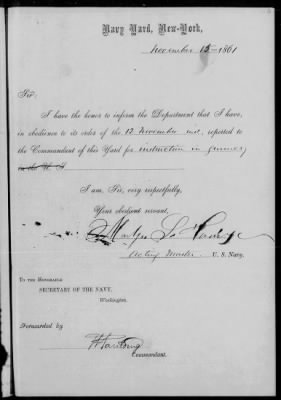 Navy Yard, New-York,
November 15 1861
Sir:
I have the honor to inform the Department that I have,
in obedience to its order of the 12 November inst, reported to
the Commandant of this Yard for instruction in gunnery
I am, Sir, very respectfully,
Your obedient servant,
Acting Master U. S. Navy.
TO THE HONORABLE
SECRETARY OF THE NAVY,
Washington.
Forwarded by
Commandant.